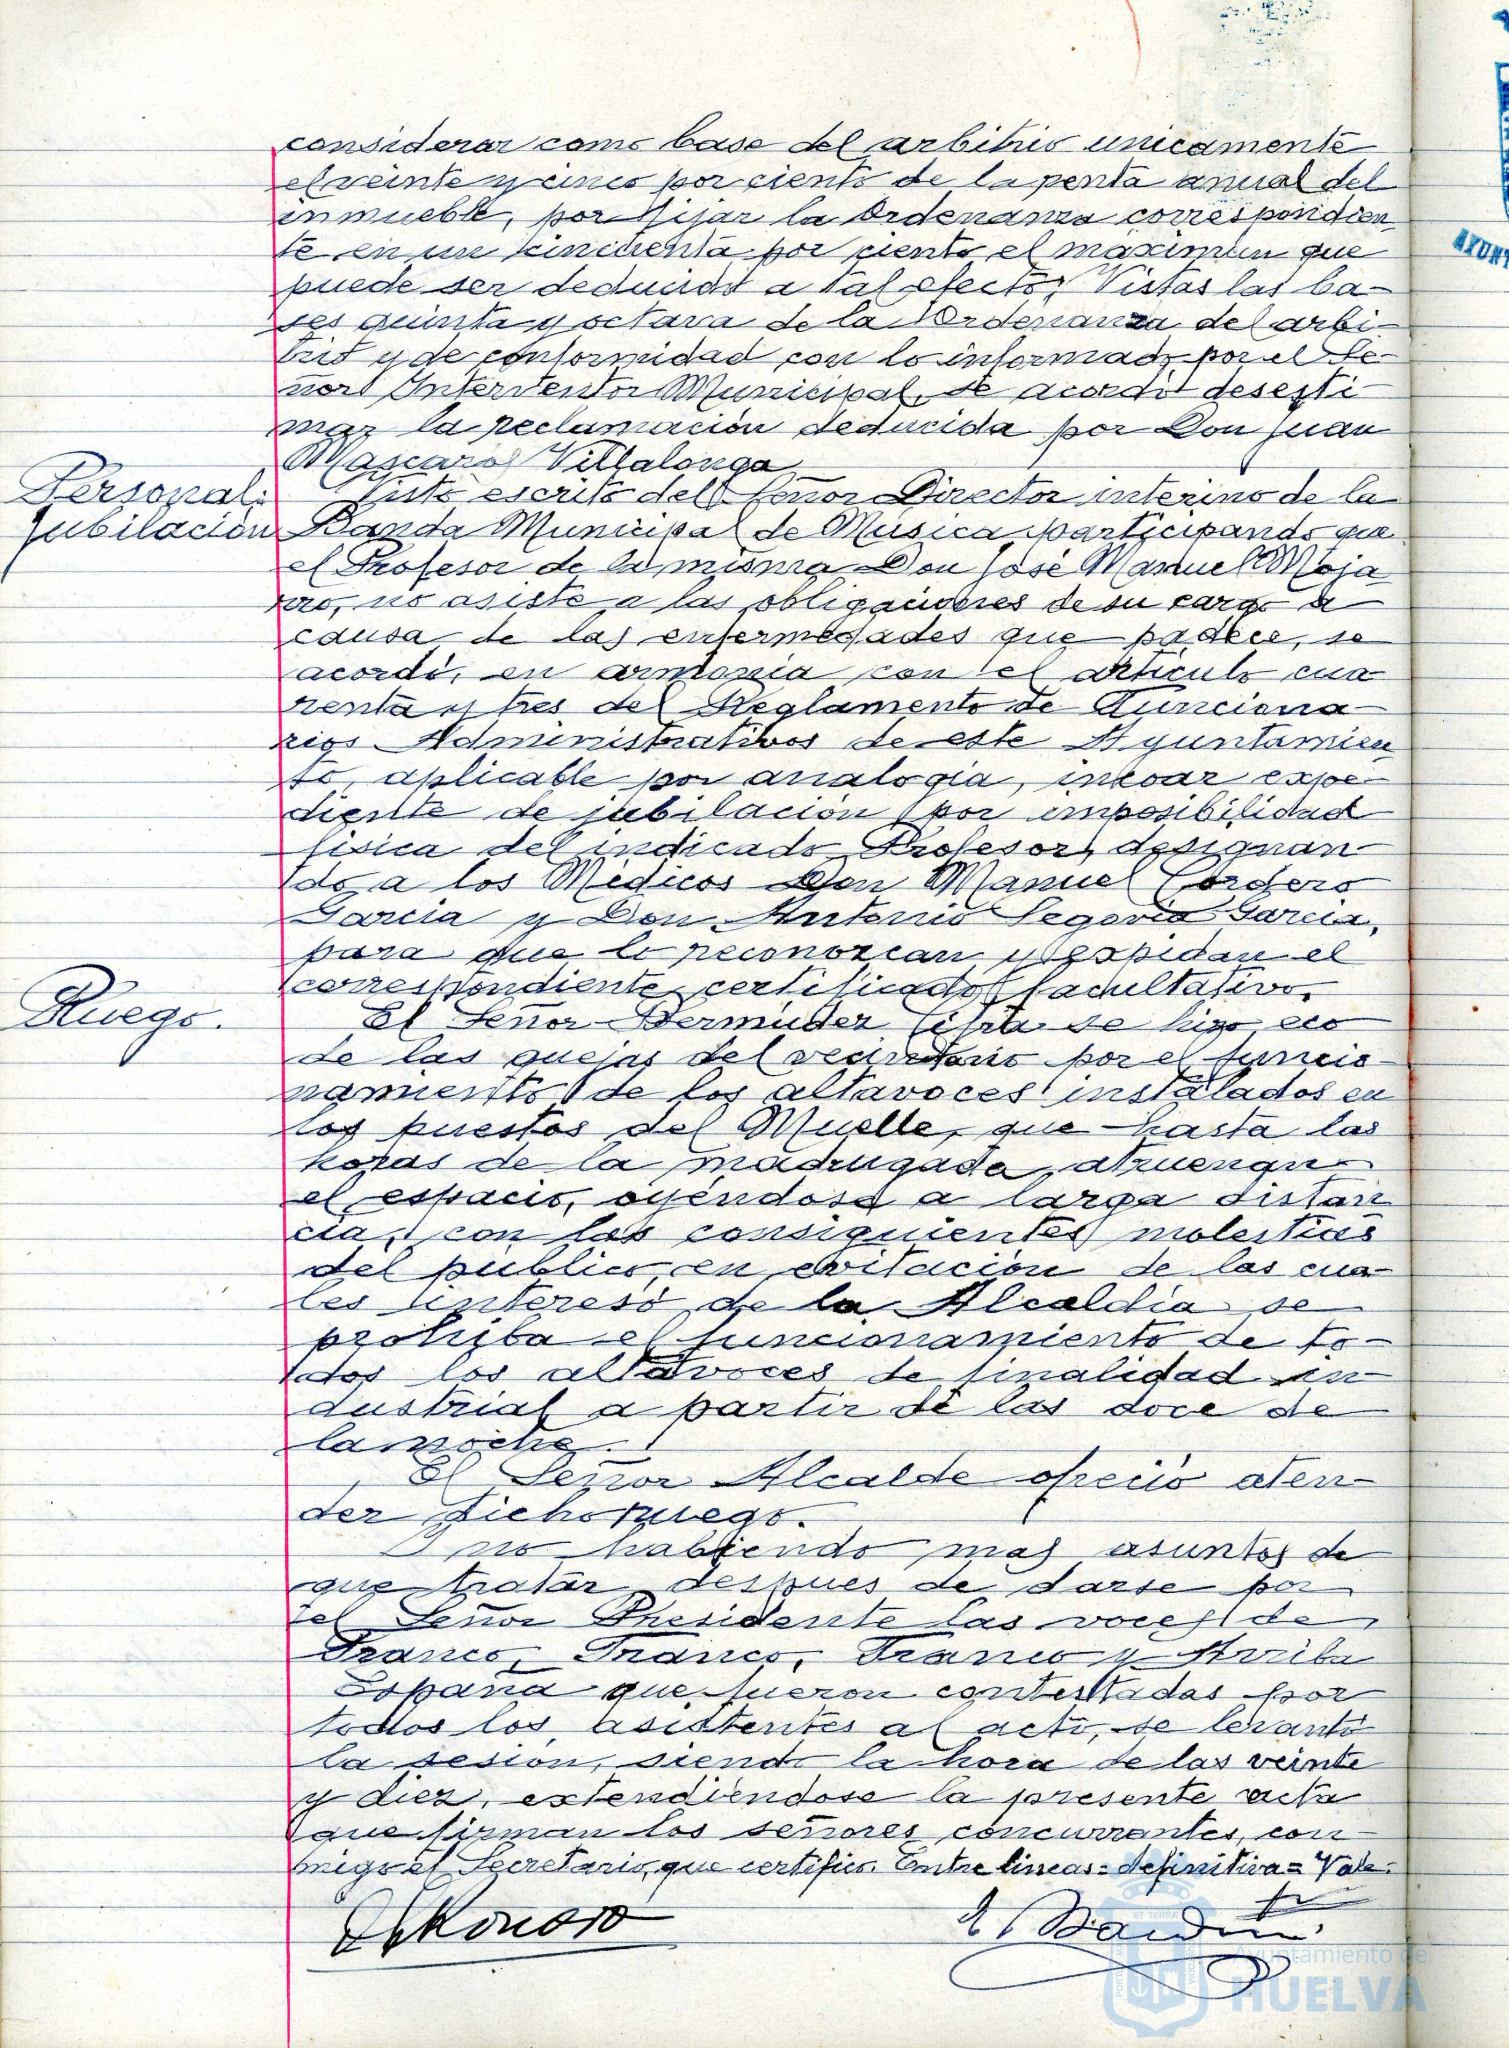 considerar como base del arbitrio unicamente
el veinte y cinco por ciento de la renta anual del
inmueble, por fijar la Ordenanza correspondien
te en un cincuenta por ciento el maximun que
puede ser deducido a tal efecto; Vistas las ba-
ses quinta y octava de la Ordenanza del arbi-
trio y de conformidad con lo informado por el Se-
ñor Interventor Municipal, se acordó desesti-
mar la reclamación deducida por Don Juan
Mascaros Villalonga
Personal:
Jubilación
Visto escrito del Señor Director interino de la
Banda Municipal de Musica participando que
el Profesor de la misma Don José Manuel Moja
rro, no asiste a las obligaciones de su cargo a
causa de las enfermedades que padece, se
acordó, en armonia con el articulo cua
renta y tres del Reglamento de Funciona-
rios Administrativos de este Ayuntamien
to, aplicable por analogia, incoar expe-
diente de jubilación por imposibilidad
fisica del indicado Profesor, designan-
do a los Médicos Don Manuel Cordero
Garcia y Don Antonio Segovia Garcia,
para que lo reconozcan y expidan el
correspondiente certificado facultativo.
Ruego.
El Señor Bermudez se hizo eco
de las quejas del vecindario por el funcio-
namiento de los altavoces instalados en
los puestos del Muelle, que hasta las
horas de la madrugada atruenan
el espacio, oyéndose a larga distan
cia, con las consiguientes molestias
del publico, en evitación de las cua-
les interesó de la Alcaldia se
prohiba el funcionamiento de to-
dos los altavoces de finalidad in-
dustrial a partir de las doce de
la noche.
El Señor Alcalde ofreció aten-
der dicho ruego.
Y no habiendo mas asuntos de
que tratar, despues de darse por
el Señor Presidente las voces de
Franco, Franco, Franco y Arriba
España que fueron contestadas por
todos los asistentes al acto, se levantó
la sesión, siendo la hora de las veinte
y diez, extendiéndose la presente acta
que firman los señores concurrantes, con-
migo el Secretario, que certifico. Entre lineas = definitiva = Vale.
Ayuntamiento de
HUELVA